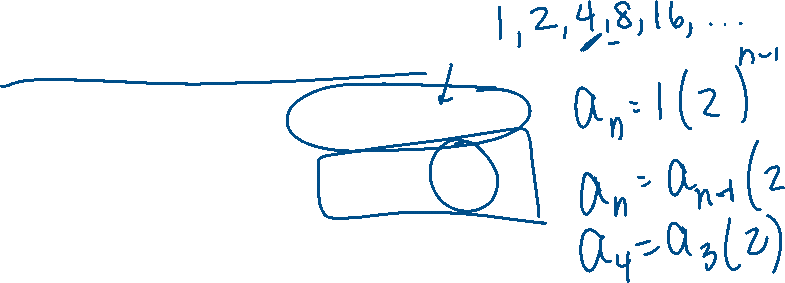 1, 2, 4, 8, 16, ...
aₙ = 1(2)ⁿ⁻¹
aₙ = aₙ₋₁(2
a₄ = a₃(2)